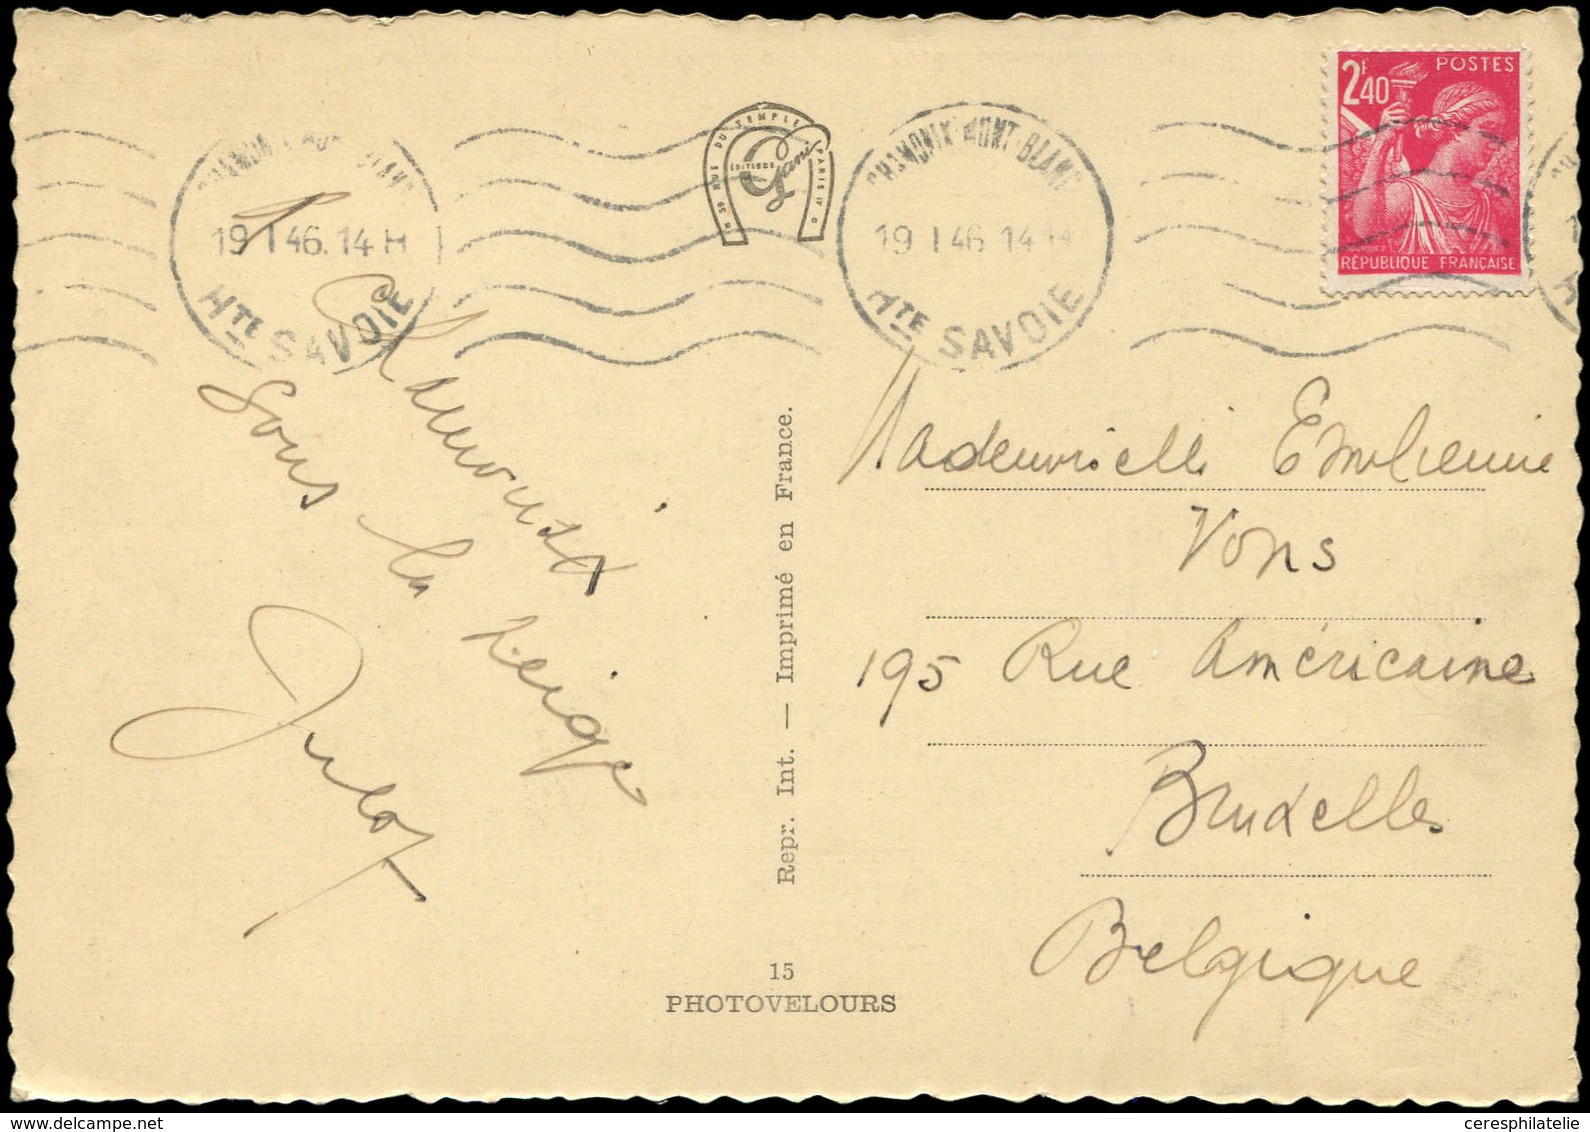 CHAMONIX-MONT-BLANC
19 I 46. 14 H
HTE SAVOIE
39 RUE DU TEMPLE PARIS IV
ÉDITIONS
Gani
CHAMONIX-MONT-BLANC
19 I 46 14 H
HTE SAVOIE
2F40
POSTES
RÉPUBLIQUE FRANÇAISE
Chamonix
Sous la neige
Julot
Repr. Int. — Imprimé en France.
15
PHOTOVELOURS
Mademoiselle Emilienne
Vons
195 Rue Américaine
Bruxelles
Belgique
ceresphilatelie